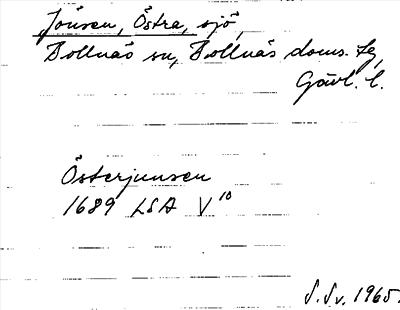 Jonsen, Östra, sjö,
Bollnäs sn, Bollnäs doms. tg,
Gävl. l.
Österjunsen
1689 LSA V 10
S.Sv. 1965.